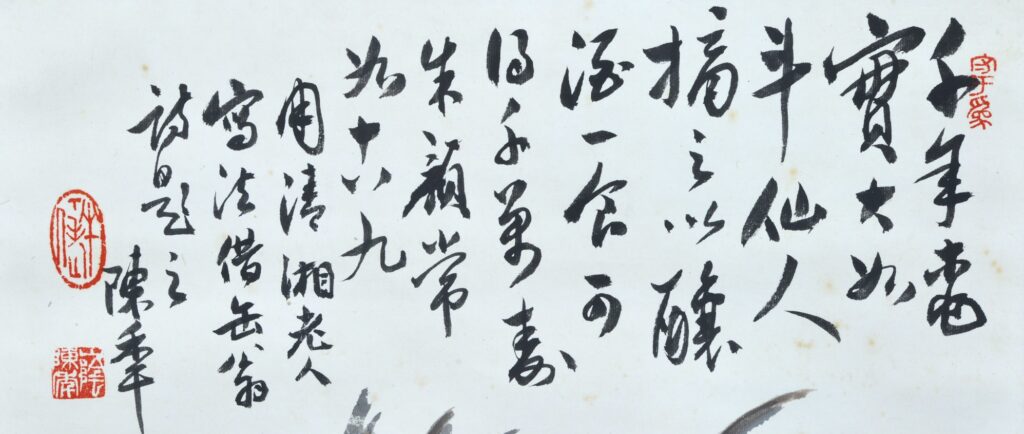 千年桃
實大如
斗仙人
摘之以釀
酒一食可
得千萬壽
朱顏常
如十八九
用清湘老人
寫法借缶翁
詩題之
陳秊